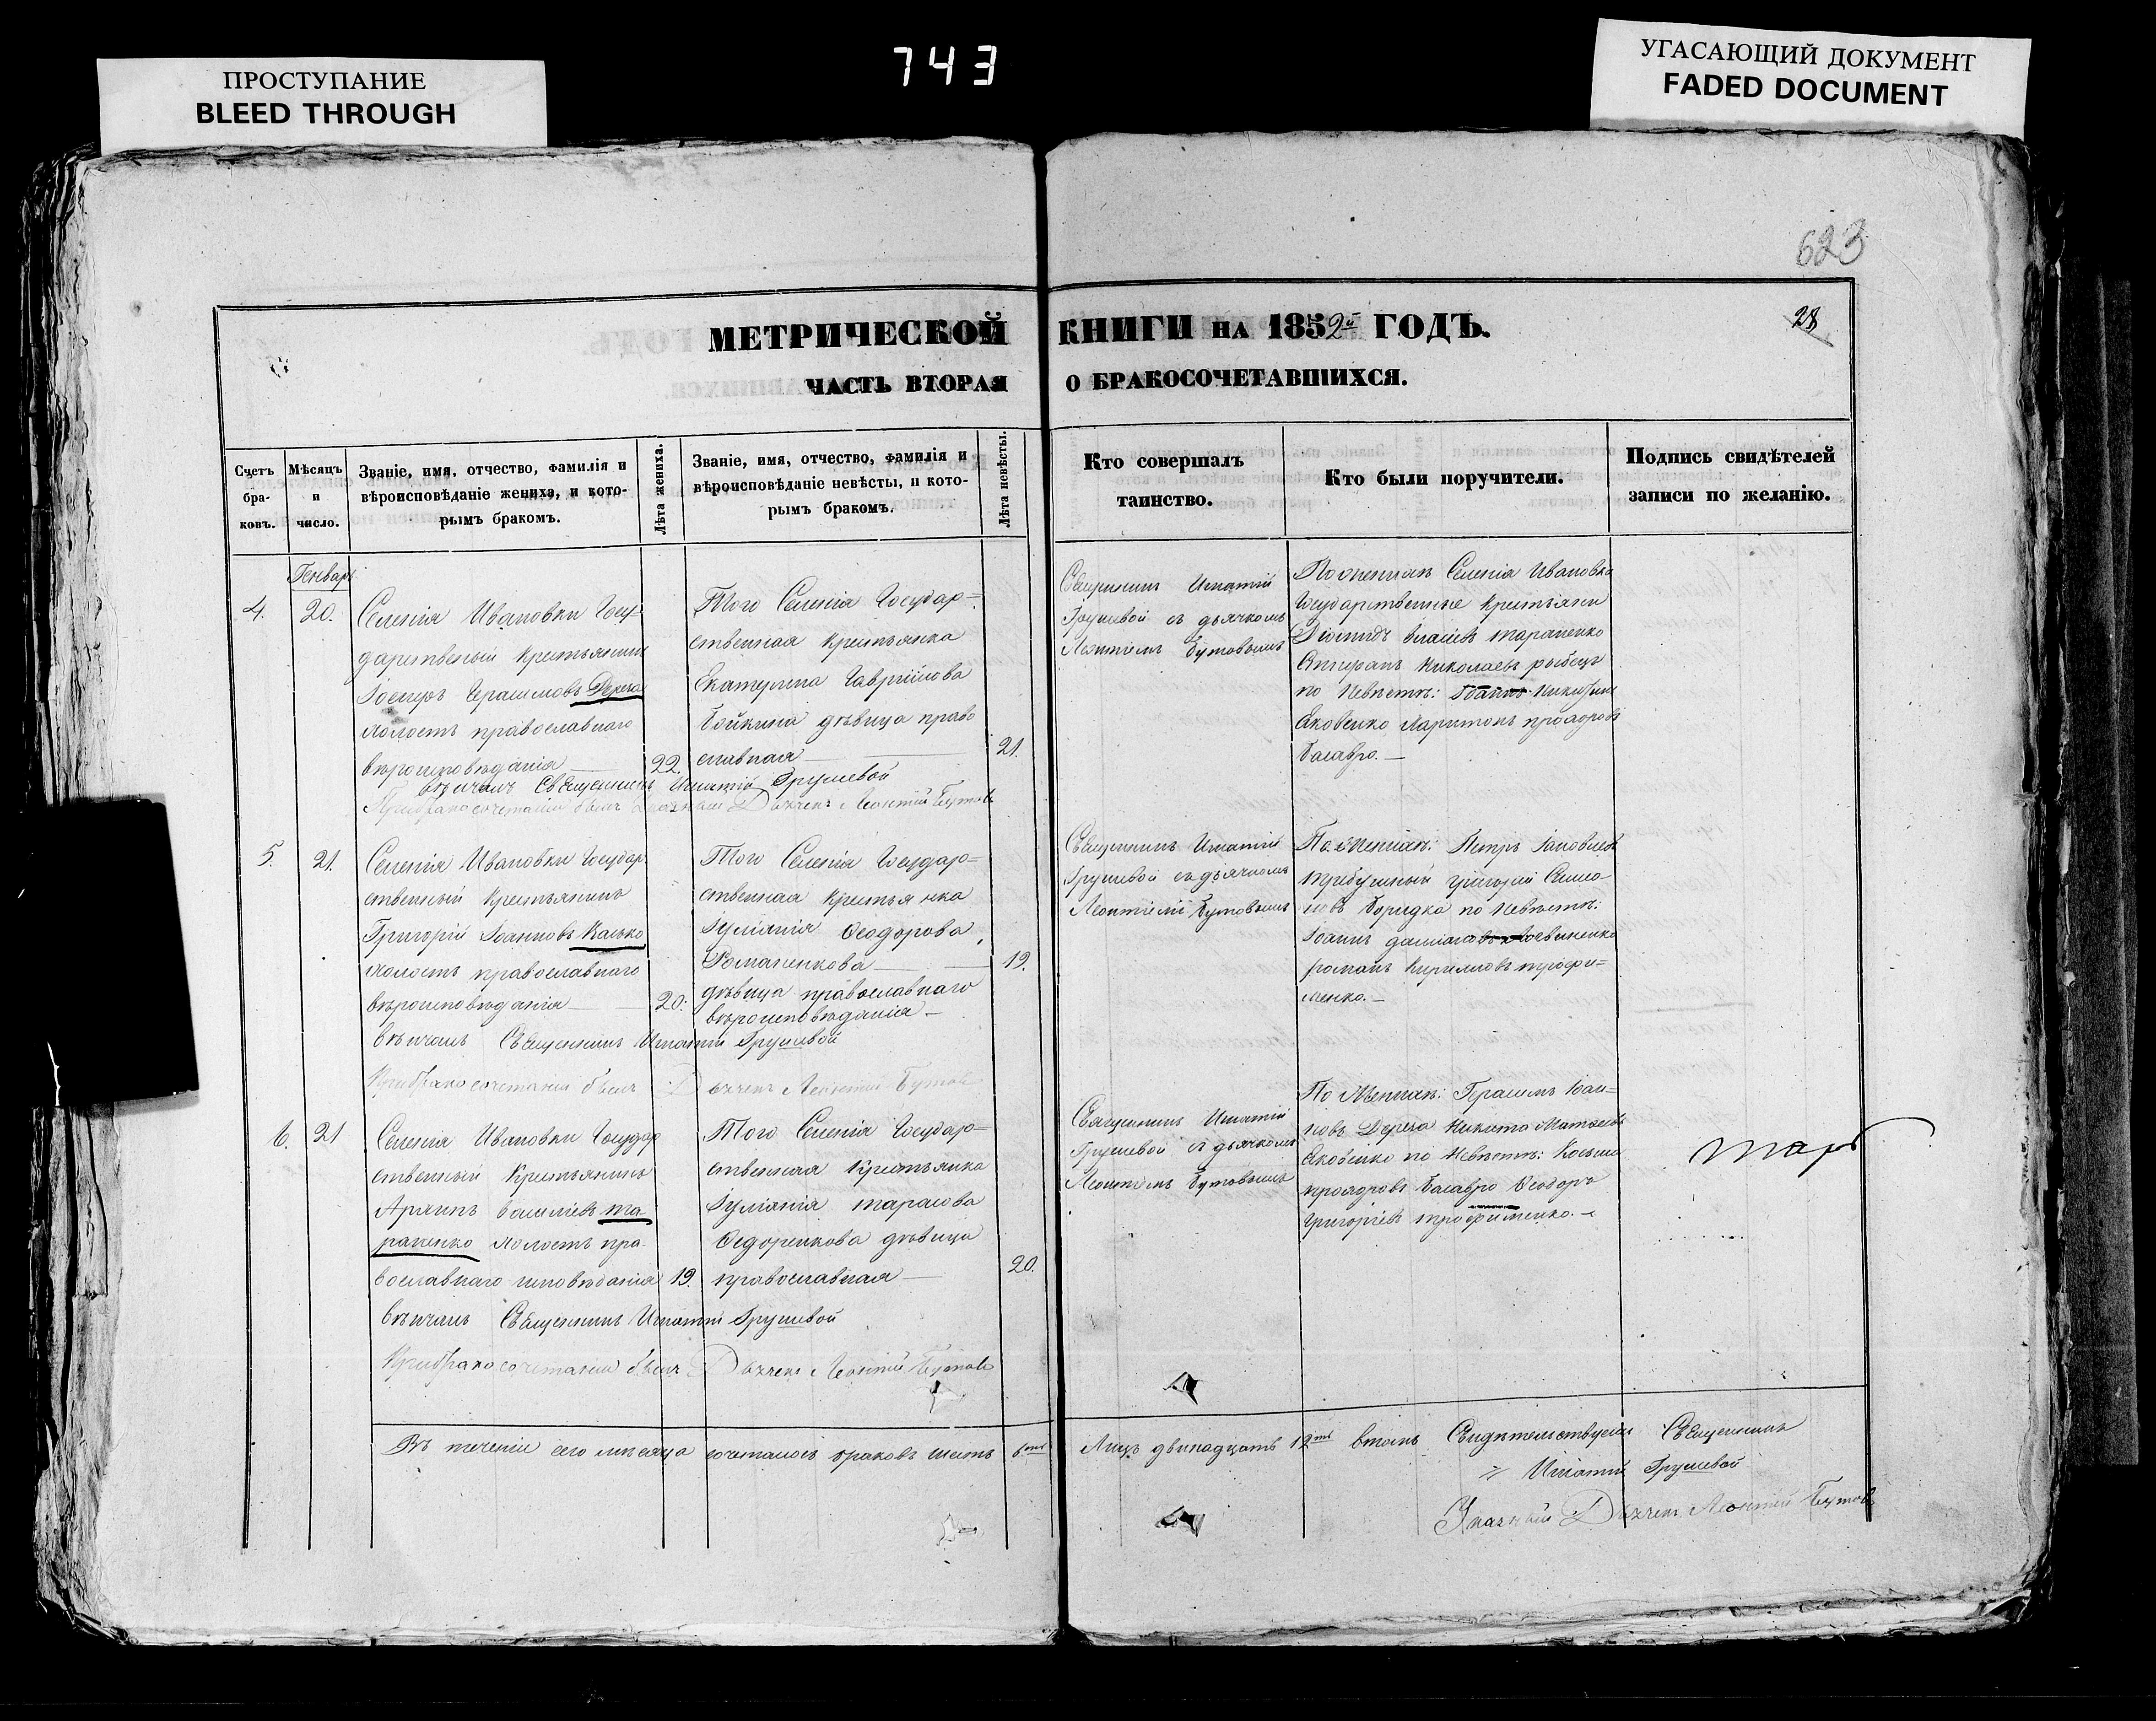 ПРОСТУПАНИЕ
BLEED THROUGH
743
УГАСАЮЩИЙ ДОКУМЕНТ
FADED DOCUMENT
623
28
МЕТРИЧЕСКОЙ КНИГИ НА 1852й ГОДЪ.
ЧАСТЬ ВТОРАЯ О БРАКОСОЧЕТАВШИХСЯ.
Счетъ
бра-
ковъ.
Мѣсяцъ
и
число.
Званіе, имя, отчество, фамилія и
вѣроисповѣданіе жениха, и кото-
рымъ бракомъ.
Лѣта жениха.
Званіе, имя, отчество, фамилія и
вѣроисповѣданіе невѣсты, и кото-
рымъ бракомъ.
Лѣта невѣсты.
Кто совершалъ
таинство.
Кто были поручители.
Подпись свидѣтелей
записи по желанію.
Генварь
4.
20.
Селенія Ивановки Госу-
дарственый крестьянинъ
Іосифъ Герасимовъ Дерега
холостъ православнаго
вѣроисповѣданія
22.
Того Селенія Государ=
ственная крестьянка
Екатерина Гавріилова
Бойкина дѣвица право
славная
21.
Священникъ Игнатій
Грушевой съ дьячкомъ
Леонтіемъ Бутовымъ
По женихѣ Селенія Ивановки
Государственые крестьяни
тараненко
Николаевъ
по Невѣстѣ:
Яковенко Харитонъ
Балавро.
вѣнчалъ Священникъ Игнатій Грушевой
При бракосочетаніи былъ Дьячекъ Леонтій Бутовъ
5.
21.
Селенія Ивановки Государ
ственный крестьянинъ
Григорій Іоанновъ Касько
холостъ православнаго
вѣроисповѣданія
20.
Того Селенія Государ=
ственная крестьянка
Іуліанія Феодорова
Романенкова
дѣвица православнаго
вѣроисповѣданія
19.
Священникъ Игнатій
Грушевой съ дьячкомъ
Леонтіемъ Бутовымъ
По женихѣ: Петръ
Григорій Симо
новъ по Невѣстѣ:
Іоаннъ
романъ Кириловъ трофи=
менко.
вѣнчалъ Священникъ Игнатій Грушевой
При бракосочетаніи былъ Дьячекъ Леонтій Бутовъ
6.
21
Селенія Ивановки Государ
ственный крестьянинъ
Архипъ Василіевъ та
раненко холостъ пра-
вославнаго исповѣданія
19.
Того Селенія Государ=
ственная крестьянка
Іуліанія тарасова
Федоренкова дѣвица
православная
20.
Священникъ Игнатій
Грушевой съ дьячкомъ
Леонтіемъ Бутовымъ
По женихѣ: Герасимъ Іоан=
новъ Дерега Никита Матвеевъ
Яковенко по Невѣстѣ: Косьма
Балавро Феодоръ
Григоріевъ трофименко.
вѣнчалъ Священникъ Игнатій Грушевой
При бракосочетаніи былъ Дьячекъ Леонтій Бутовъ
Въ теченіи сего мѣсяца сочеталось браковъ шесть 6ть
Лицъ двѣнадцать 12ть втомъ Свидѣтельствуемъ Священникъ
Игнатій Грушевой
Указный Дьячекъ Леонтій Бутовъ